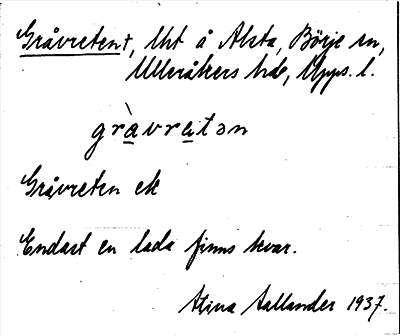 Gråvreten†, lht å Åksta, Börje sn,
Ulleråkers hd, Upps. l.
gràvratən
Gråvreten ek
Endast en lada finns kvar.
Stina Hallander 1937.